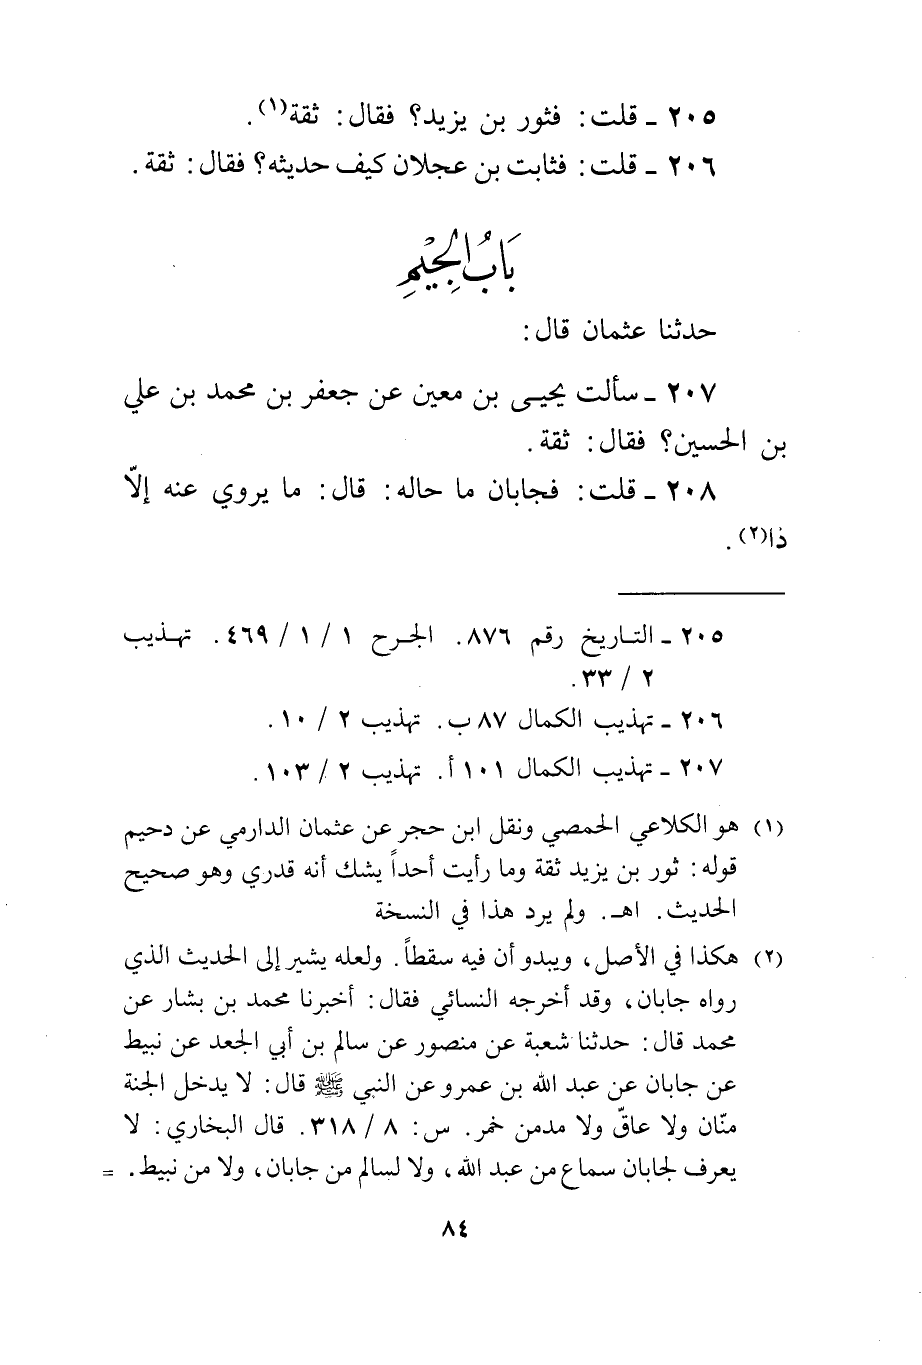 ٢٠٥ ـ قلت: فثور بن يزيد؟ فقال: ثقة(١).
٢٠٦ ـ قلت: فثابت بن عجلان كيف حديثه؟ فقال: ثقة.
بَابُ الجِيْمِ
حدثنا عثمان قال:
٢٠٧ ـ سألت يحيـى بن معين عن جعفر بن محمد بن علي
بن الحسين؟ فقال: ثقة.
٢٠٨ ـ قلت: فجابان ما حاله: قال: ما يروي عنه إلاّ
ذا(٢).
٢٠٥ ـ التـاريخ رقم ٨٧٦. الجـرح ١ / ١ / ٤٦٩. تهـذيب
٢ / ٣٣.
٢٠٦ ـ تهذيب الكمال ٨٧ ب. تهذيب ٢ / ١٠.
٢٠٧ ـ تهذيب الكمال ١٠١ أ. تهذيب ٢ / ١٠٣.
(١) هو الكلاعي الحمصي ونقل ابن حجر عن عثمان الدارمي عن دحيم
قوله: ثور بن يزيد ثقة وما رأيت أحداً يشك أنه قدري وهو صحيح
الحديث. اهـ. ولم يرد هذا في النسخة
(٢) هكذا في الأصل، ويبدو أن فيه سقطاً. ولعله يشير إلى الحديث الذي
رواه جابان، وقد أخرجه النسائي فقال: أخبرنا محمد بن بشار عن
محمد قال: حدثنا شعبة عن منصور عن سالم بن أبي الجعد عن نبيط
عن جابان عن عبد الله بن عمرو عن النبي ﷺ قال: لا يدخل الجنة
منّان ولا عاقّ ولا مدمن خمر. س: ٨ / ٣١٨. قال البخاري: لا
يعرف لجابان سماع من عبد الله، ولا لسالم من جابان، ولا من نبيط. =
٨٤